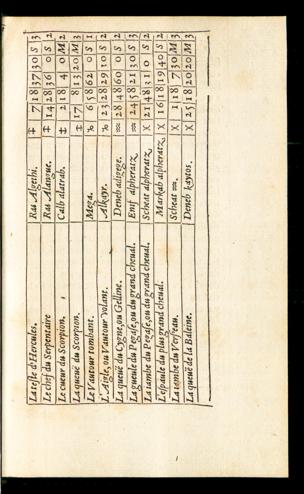 La teste d'Hercules. Ras Algethi. ♐ 7 18 37 30 S 3
Le chef du Serpentaire Ras Alangue. ♐ 14 28 36 0 S 3
Le cueur du Scorpion. Calb alatrab. ♐ 2 18 4 0 M 2
La queuë du Scorpion. ♐ 17 8 13 20 M 3
Le Vautour tombant. Mega. ♑ 6 58 62 0 S 1
L'Aigle, ou Vautour volant. Alkayr. ♑ 23 28 29 10 S 2
La queuë du Cygne, ou Gelline. Deneb adigege. ♒ 28 48 60 0 S 2
La gueule du Pegase, ou du grand cheual. Enif alpheratz ♒ 24 58 21 30 S 3
La iambe du Pegase, ou du grand cheual. Scheat alpheratz ♓ 21 48 31 0 S 2
L'espaule du plus grand cheual. Markab alpheratz ♓ 16 18 19 40 S 2
La iambe du Verseau. Scheat ♒. ♓ 1 18 7 30 M 3
La queuë de la Baleine. Deneb kaytos. ♓ 25 18 20 20 M 3